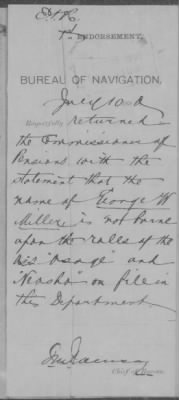 1st ENDORSEMENT.
BUREAU OF NAVIGATION,
July
Respectfully returned
the Commissioner of
Pensions with the
statement that the
name of George W
Miller is not borne
upon the rolls of the
"Osage" and
"Neosho" on file in
this Department
Chief of Bureau